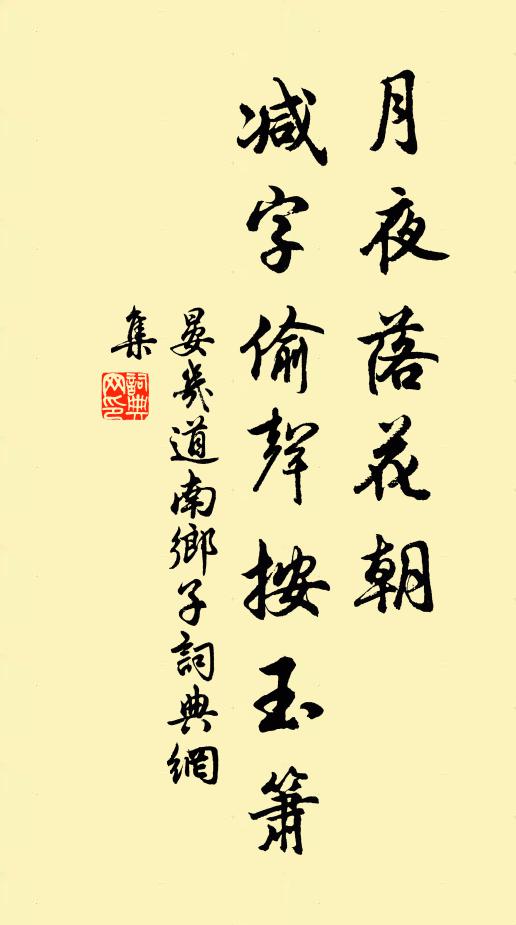 月夜落花朝
减字偷聲按玉簫
晏幾道南鄉子詞典網
集
詞典網印